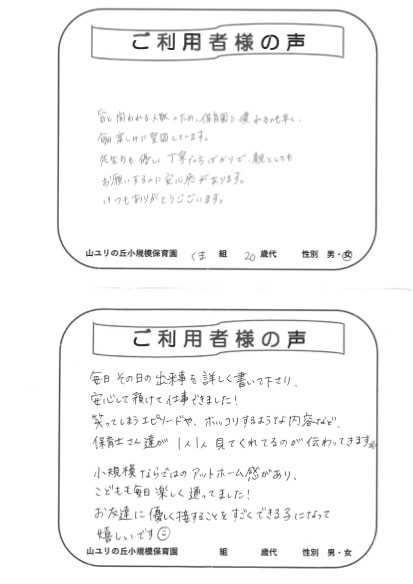 ご利用者様の声
皆と関われる人数のため、保育園に慣れるのも早く、
毎日楽しみに登園しています。
先生方も優しく丁寧な方ばかりで、親としても
お願いするのに安心感があります。
いつもありがとうございます。
山ユリの丘小規模保育園 くま 組 20 歳代 性別 男・女
ご利用者様の声
毎日その日の出来事を詳しく書いて下さり、
安心して預けて仕事できました!
笑ってしまうエピソードや、ホッコリするような内容など、
保育士さん達が1人1人見てくれてるのが伝わってきます
小規模ならではのアットホーム感があり、
こどもも毎日楽しく通ってました!
お友達に優しく接することをすごくできる子になって
嬉しいです
山ユリの丘小規模保育園 組 歳代 性別 男・女